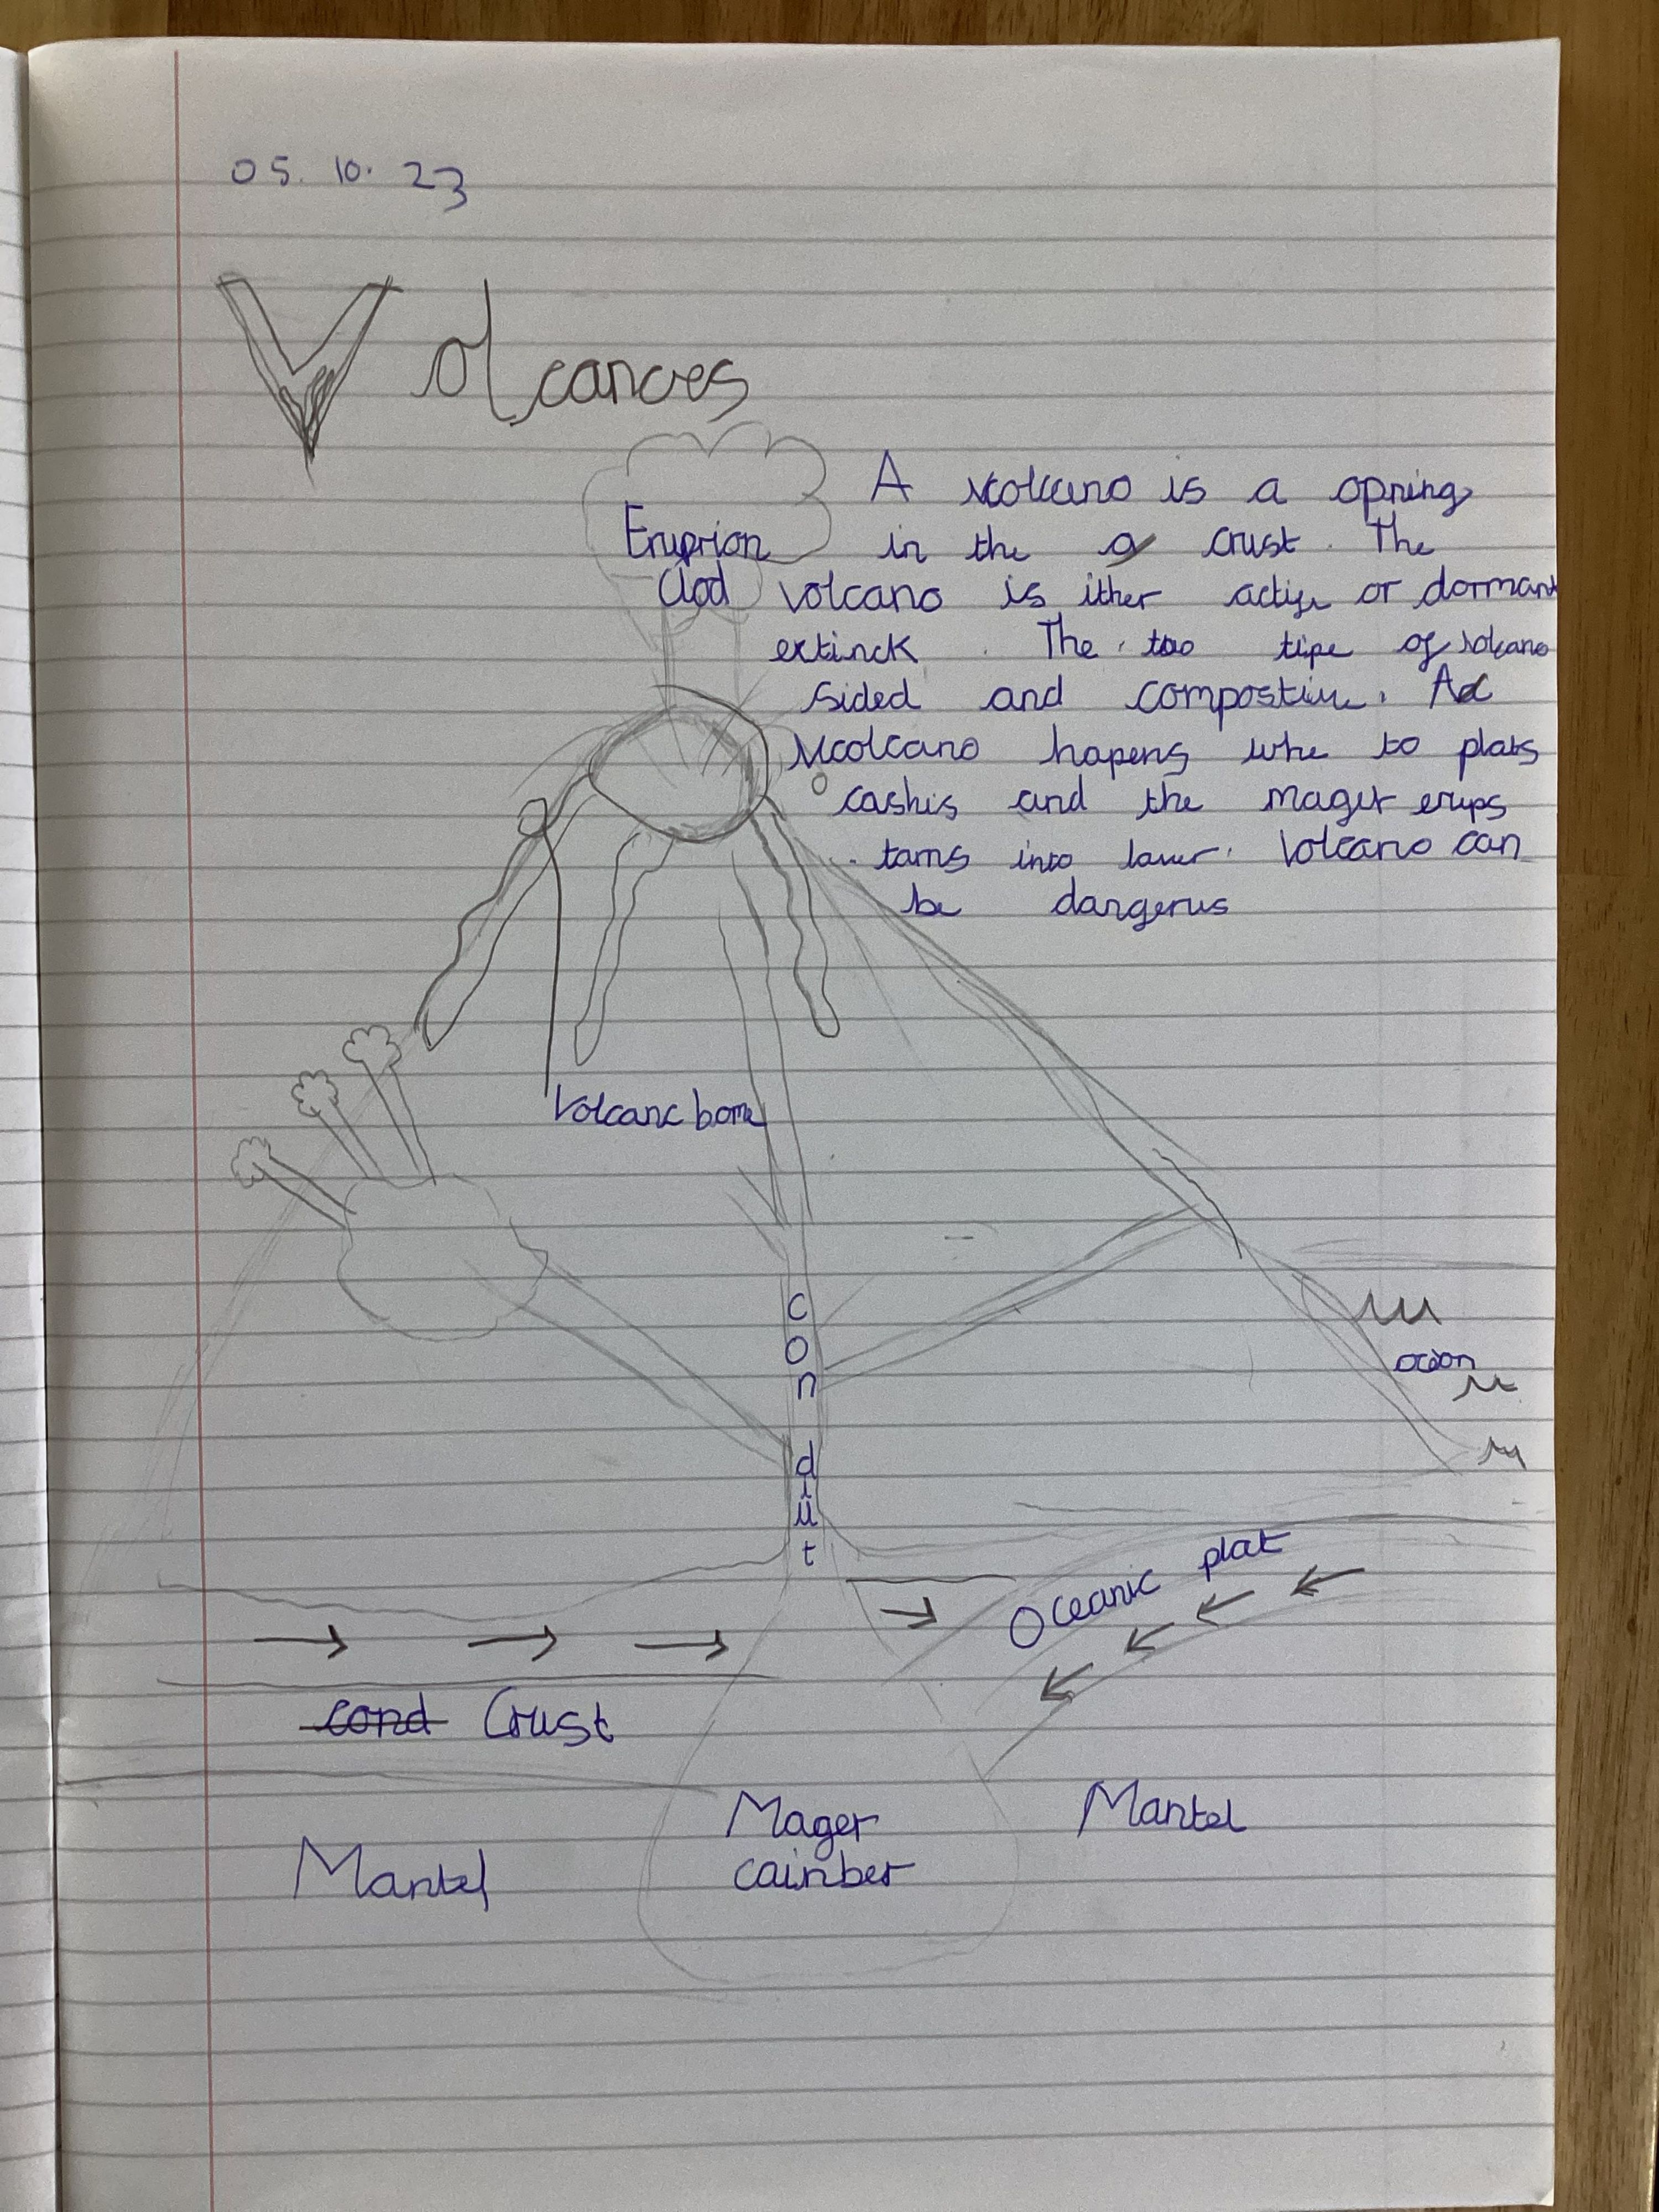 05. 10. 23
Volcanoes
A volcano is a opning
in the crust. The
volcano is ither active or dormant
extinck. The two tipe of volcano
sided and compostive. A
volcano hapens whe to plats
cashis and the mager erups
tarns into laver. Volcano can
be dangerus
Eruprion
Clod
Volcanc bom
conduit
ocean
Oceanic plat
cond Crust
Mager
cainber
Mantel
Mantel